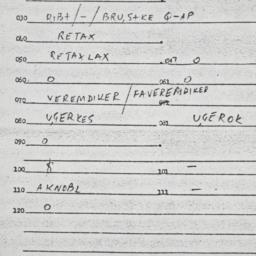 030 RIBT/-/BRUSTKE G-AP
040 RETAX
050 RETAX LAX 047 0
060 0 061 0
070 VEREMDIKER/FAVEREMDIKER
080 VGERKES 081 VGEROK
090 0
100 101 -
110 AKNOBL 111 -
120 0